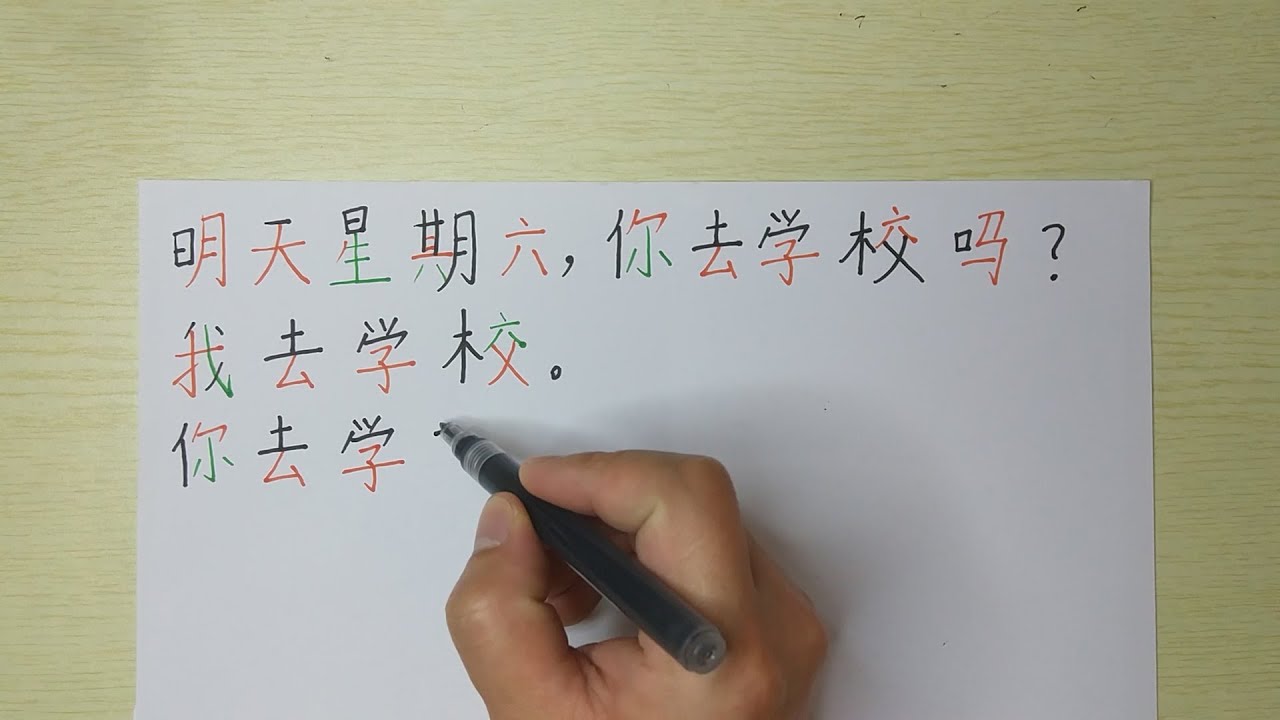 明天星期六,你去学校吗?
我去学校。
你去学